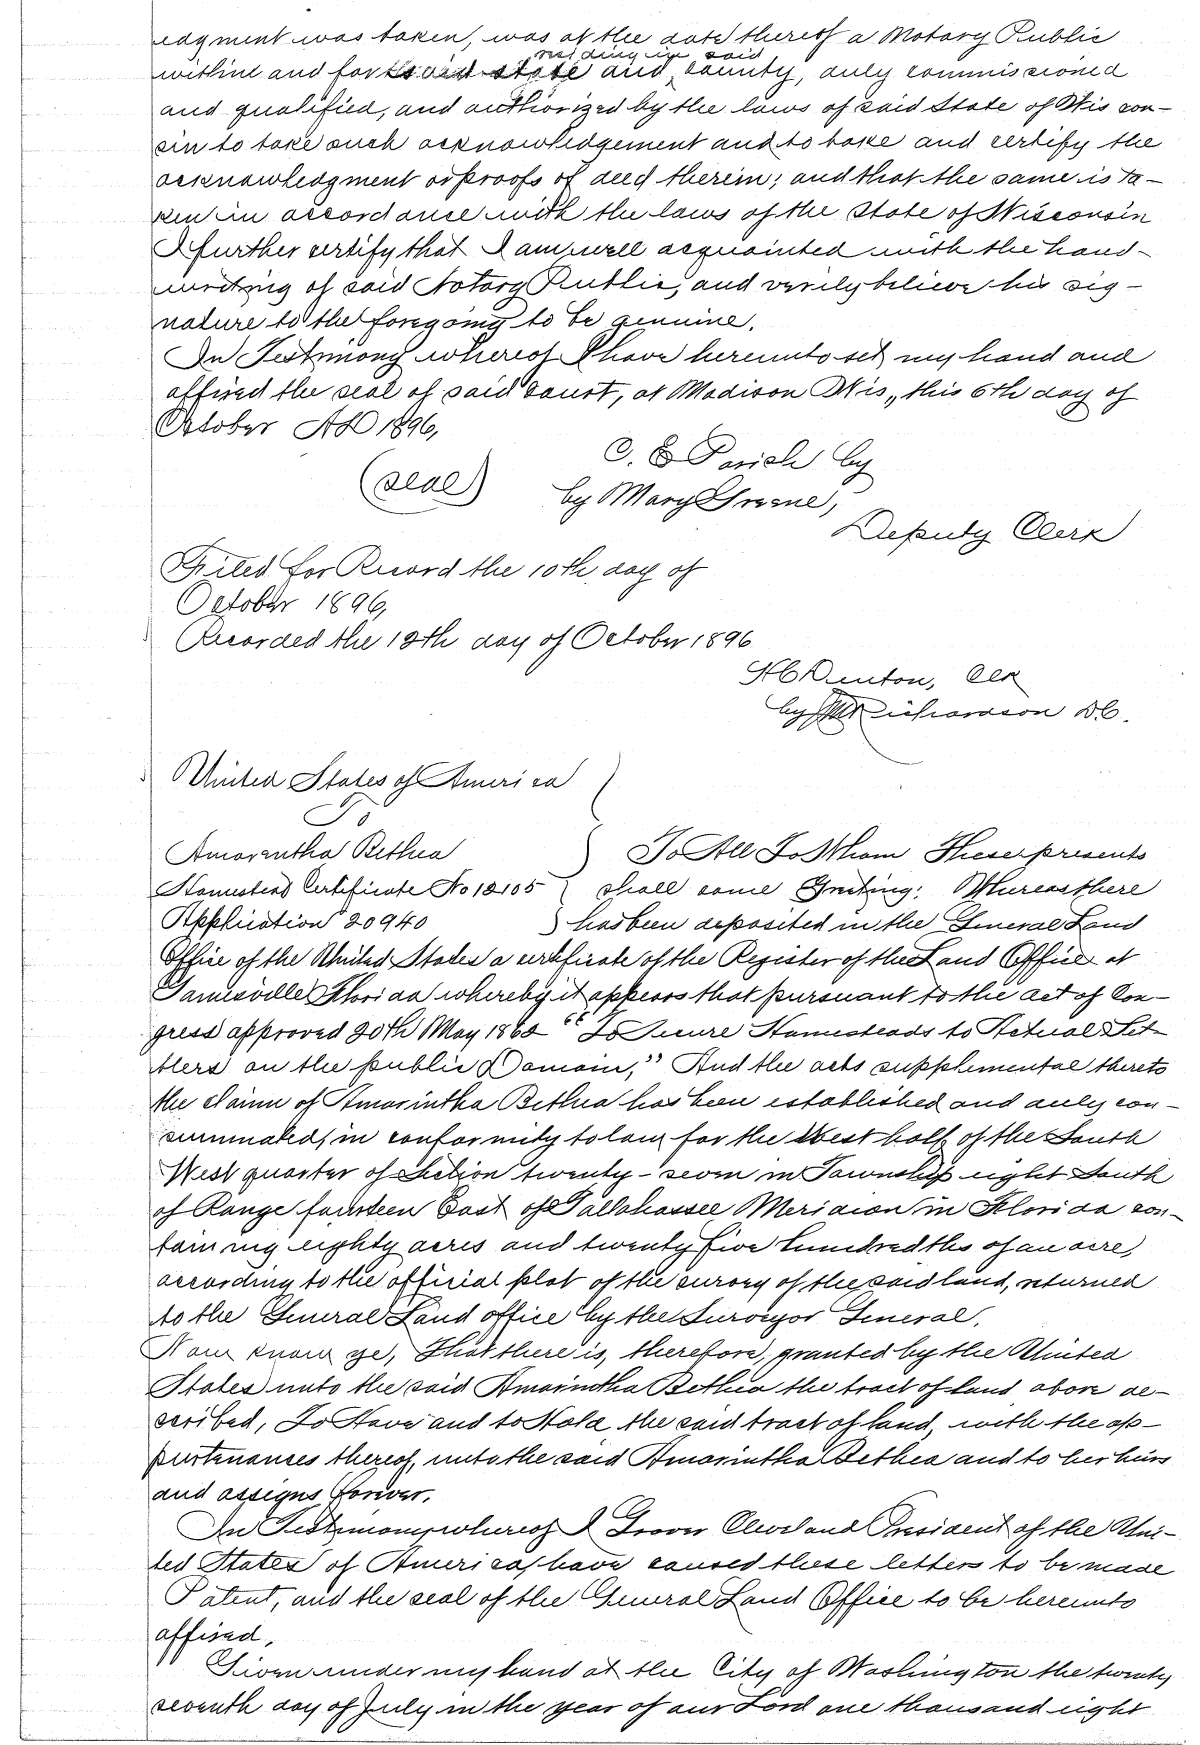 edgment was taken, was at the date thereof a Notary Public
residing in said
within and for said state and county, duly commissioned
and qualified, and authorized by the laws of said State of Wis con-
sin to take such acknowledgement and to take and certify the
acknowledgment or proofs of deed therein; and that the same is ta-
ken in accordance with the laws of the State of Wisconsin
I further certify that I am well acquainted with the hand-
writing of said Notary Public, and verily believe his sig-
nature to the foregoing to be genuine.
In Testimony whereof I have hereunto set my hand and
affixed the seal of said Court, at Madison Wis., this 6th day of
October AD 1896,
(seal)
C. E Parish by
by Mary Greene,
Deputy Clerk
Filed for Record the 10th day of
October 1896,
Recorded the 12th day of October 1896
H C Denton, Clk
by Richardson D.C.
United States of America
To
Amorentha Bethea
Homestead Certificate No 12105
Application 20940
To All To Whom These presents
shall come Greeting: Whereas there
has been deposited in the General Land
Office of the United States a certificate of the Register of the Land Office at
Gainesville Florida whereby it appears that pursuant to the act of Con-
gress approved 20th May 1862 "To Secure Homesteads to Actual Set-
tlers on the public Domain," And the acts supplemental thereto
the claim of Amarintha Bethea has been established and duly con-
summated, in conformity to law for the West half of the South
West quarter of Section twenty-seven in Township eight South
of Range fourteen East of Tallahassee Meridian in Florida con-
taining eighty acres and twenty five hundredths of an acre,
according to the official plat of the survey of the said land, returned
to the General Land office by the Surveyor General.
Now know ye, That there is, therefore, granted by the United
States unto the said Amarintha Bethea the tract of land above de-
scribed, To Have and to Hold the said tract of land, with the ap-
purtenances thereof, unto the said Amarintha Bethea and to her heirs
and assigns forever.
In Testimony whereof I Grover Cleveland President of the Uni-
ted States of America, have caused these letters to be made
Patent, and the seal of the General Land Office to be hereunto
affixed.
Given under my hand at the City of Washington the twenty
seventh day of July in the year of our Lord one thousand eight